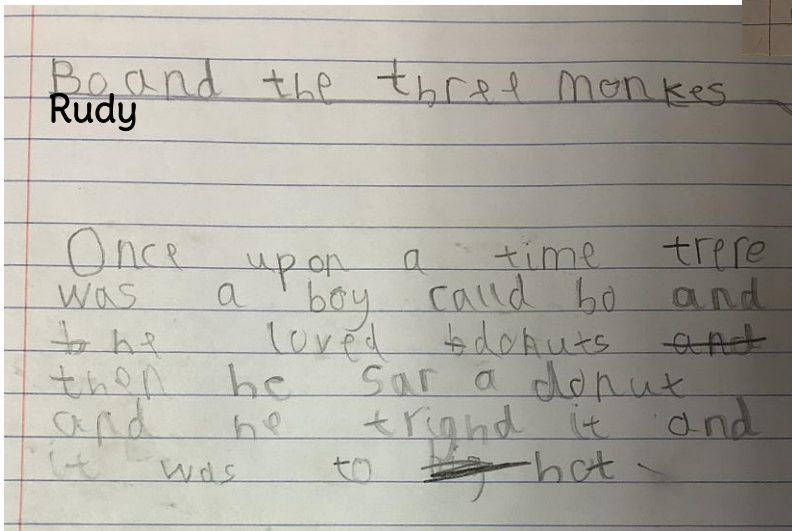 Bo and the three monkes
Rudy
Once upon a time trere
was a boy calld bo and
he loved donuts and
then he sar a donut
and he trighd it and
it was to hot